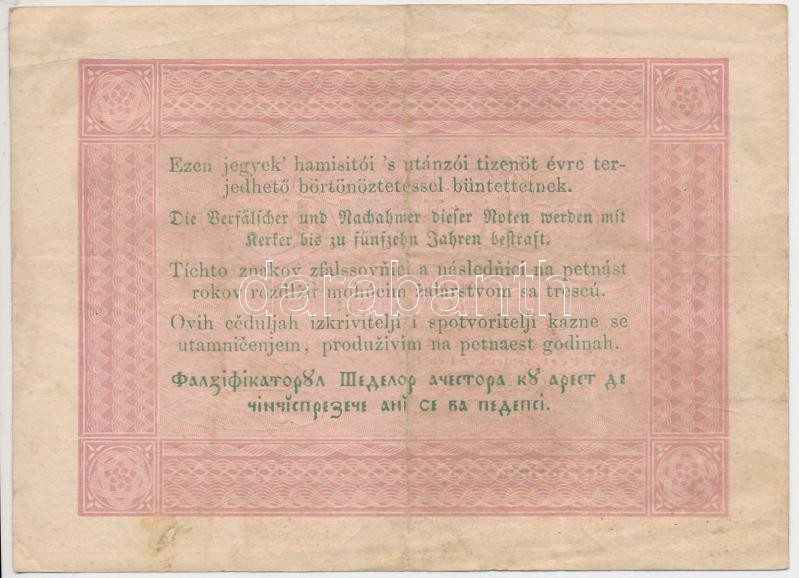 Ezen jegyek' hamisitói 's utánzói tizenöt évre ter-
jedhető börtönöztetéssel büntettetnek.
Die Verfälscher und Nachahmer dieser Noten werden mit
Kerker bis zu fünfzehn Jahren bestraft.
Tíchto znakov zfalssovňíci a následňíci na petnást
rokov rozdlžit mohúcim žalarstvom sa trescú.
Ovih cěduljah izkrivitelji i spotvoritelji kazne se
utamničenjem, produživim na petnaest godinah.
Фалзіфікаторꙋл Шеделор ачестора кꙋ арест де
чінчіспрезече ані се ва педепсі.
darabanth